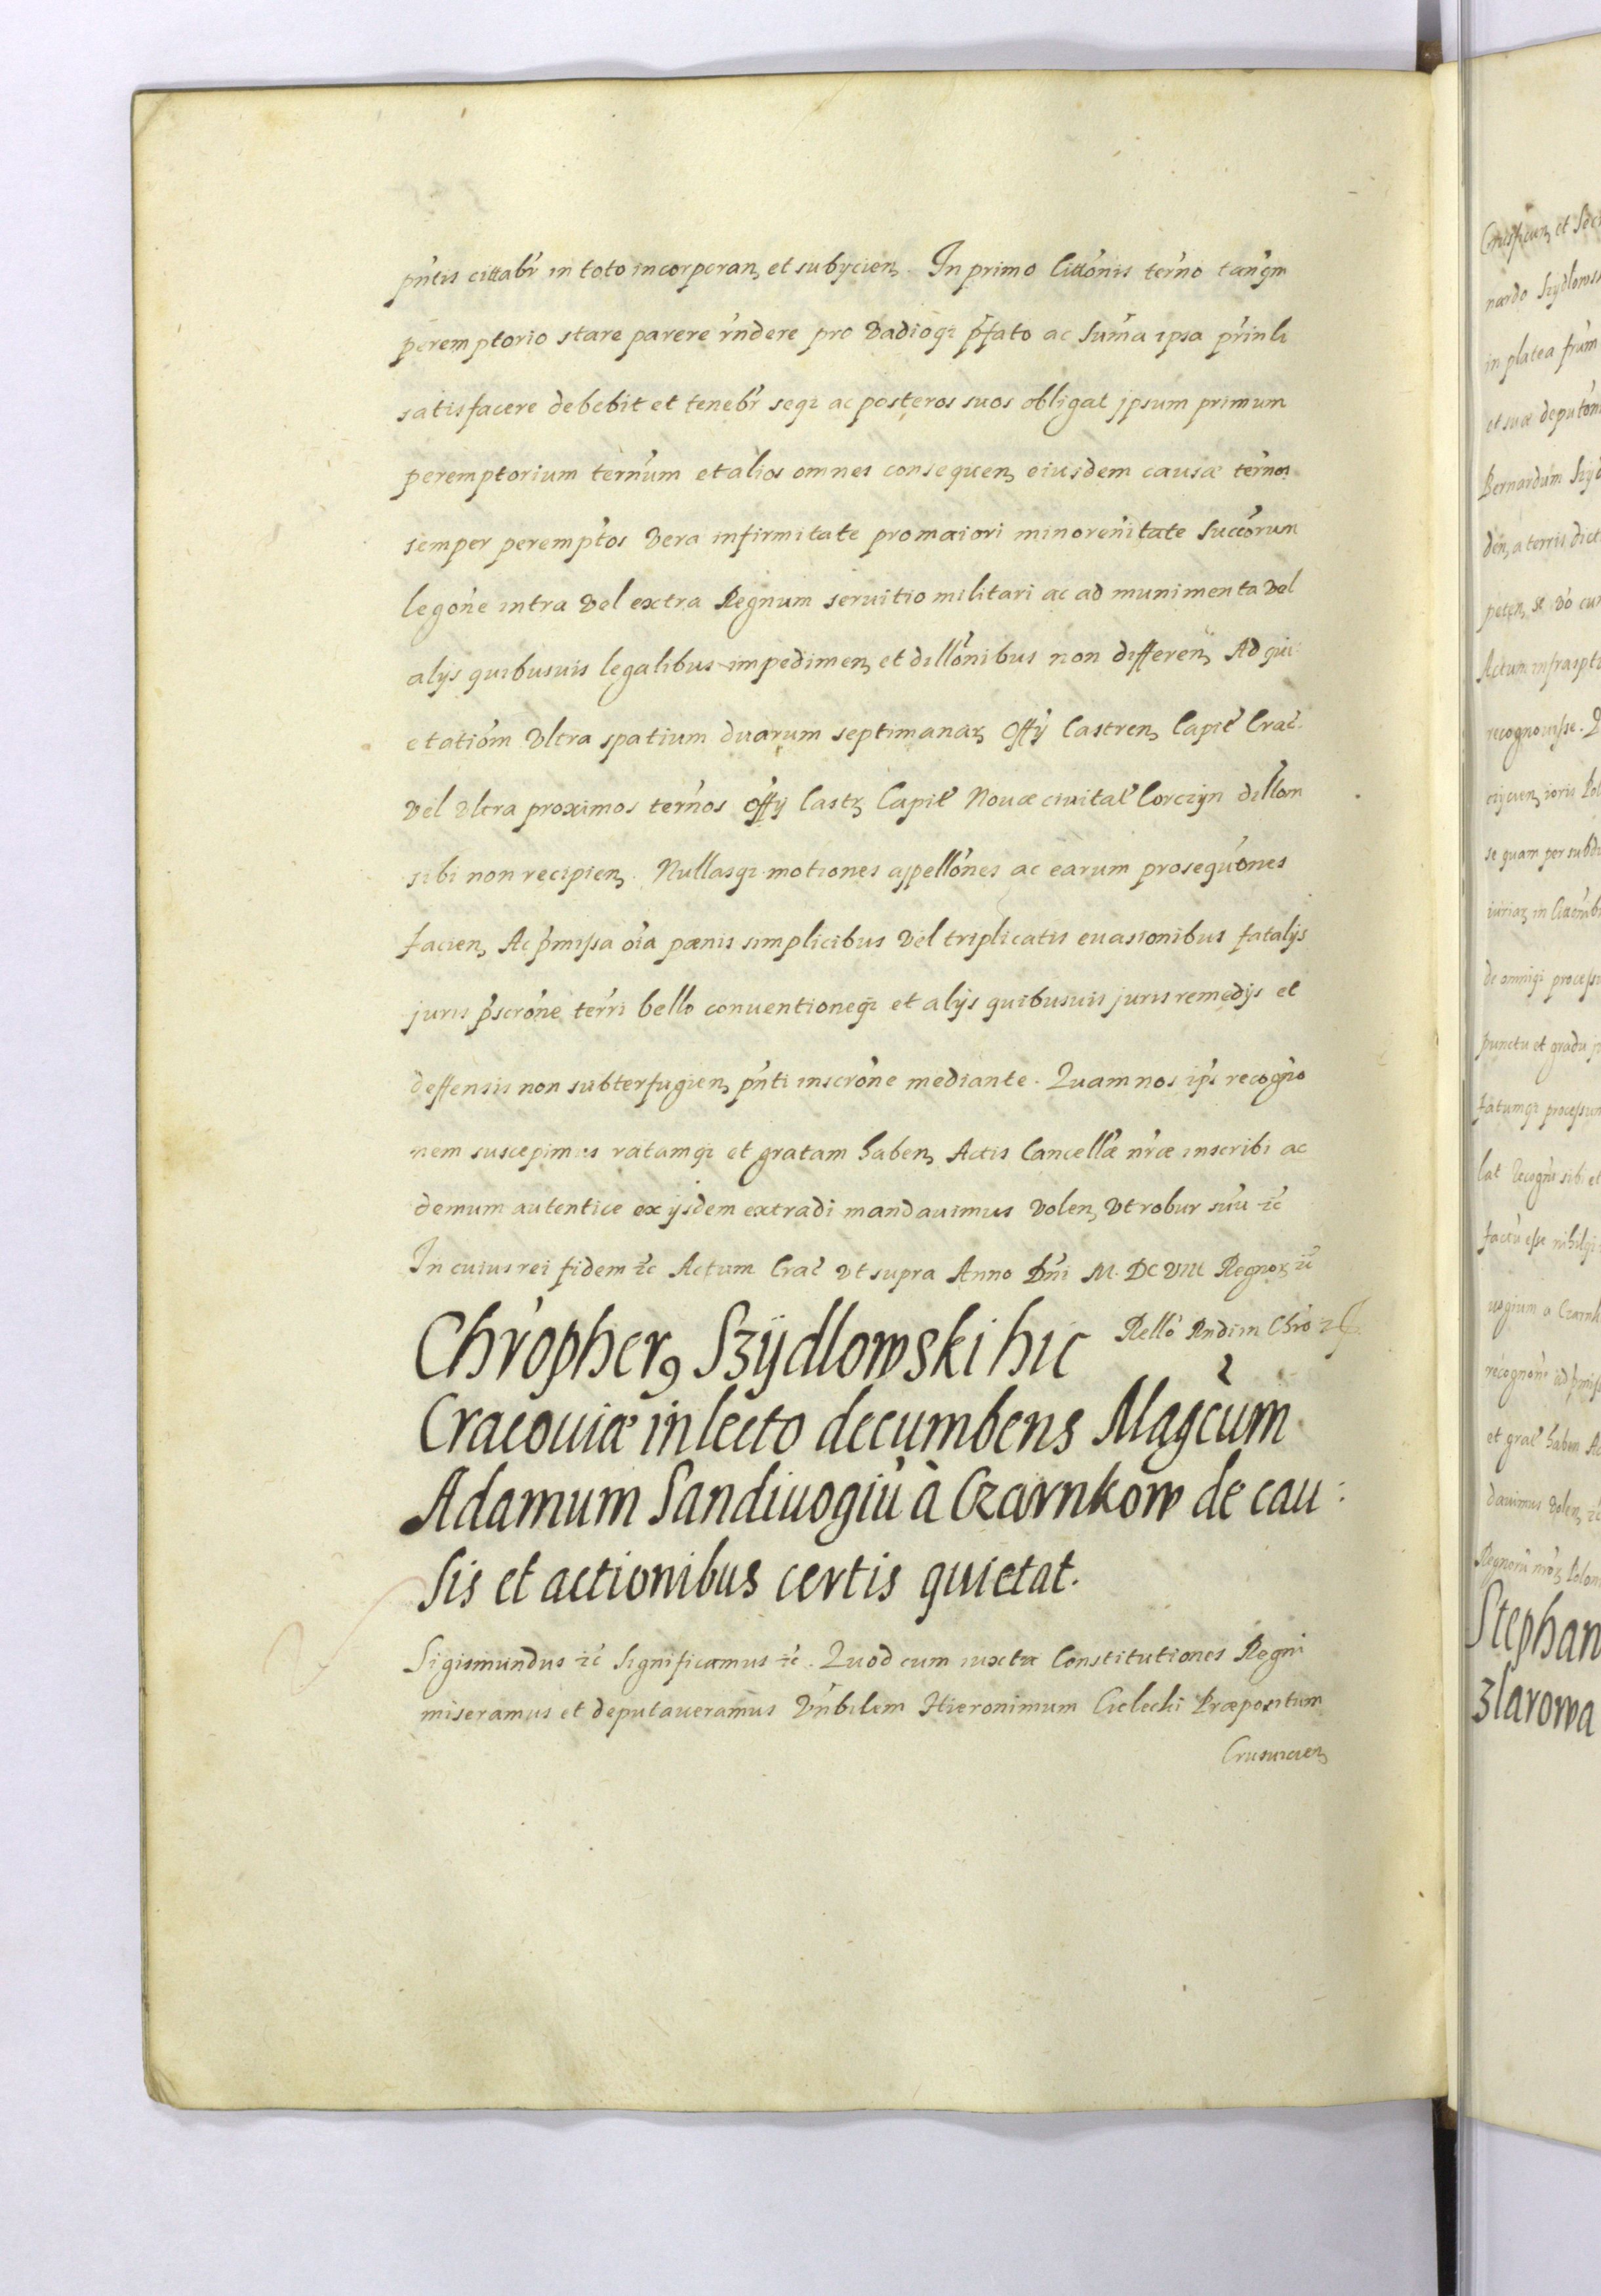 pn̄tis cittabr̄ in toto incorporan, et subycien, . In primo Citt̄onis ter̄no tan̄qm
peremptorio stare parere rn̄dere pro Vadioqz p̄fato ac Sum̄a ipsa prīnli
satisfacere debebit et tenebr̄ seqz ac posteros suos obligat jpsum primum
peremptorium ter̄num et alios omnes consequen, eiusdem causæ ter̄nos
semper perempt̄os Vera infirmitate pro maiori minoren̄itate Succ̄orum
legōne intra Vel extra Regnum seruitio militari ac ad munimenta Vel
alijs quibusuis legalibus impedimen, et dill̄onibus non differen, Ad qui:
etatiōm Vltra spatium duarum septimanaz Offÿ Castren, Capit̄ Crac̄.
Vel Vltra proximos ter̄nos Offÿ Castz Capit̄ Nouæ ciuitat̄ Corczÿn dill̄om
sibi non recipien, . Nullasqz motiones appell̄ones ac earum prosequōnes
facien, Ac p̄missa ōia pænis simplicibus Vel triplicatis euasionibus fatalijs
juris p̄scrōne ter̄ri bello conuentioneqz et alijs quibusuis juris remedijs et
deffensis non subterfugien, pn̄ti inscrōne mediante . Quam nos ip̄s recogn̄o
nem suscepimus ratamqz et gratam haben, Actis Cancell̄æ nr̄æ inscribi ac
demum autentice ex ijsdem extradi mandauimus Volen, Vt robur suū zc̄
In cuius rei fidem zc̄ Actum Crac̄ Vt supra Anno Dn̄i M. DC VIII Regnoz zc̄
Rell̄o Rndi m Chrō
Chrōpher9 Szÿdlowski hic
Cracouiæ in lecto decumbens Magc̄um
Adamum Sandiuogiū à Czarnkow de cau:
sis et actionibus certis quietat.
Sigismundus zc̄ Significamus zc̄ . Quod cum iuxta Constitutiones Regni
miseramus et deputaueramus Vn̄bilem Hieronimum Cielecki Præpositum
Crusuicien,
Crusuicen, et
nardo Szydlows
in platea frūm
et suæ deputōn
Bernardūm Szÿd
a terris dict
peten, se Vō cu
Actum infrasptu
recognouisse. Q
se quam per subd
iuriaz in
de omniqz processu
punctu et gradu
fatumqz processum
lat Recogn̄ sibi et
factū esse nihilqz
uogium a Czarnk
recognōn̄ ad p̄miss
et grat̄ haben Ac
dauimus Volen, zc̄
Regnorū nr̄oz Polon
Stephan
zlarowa